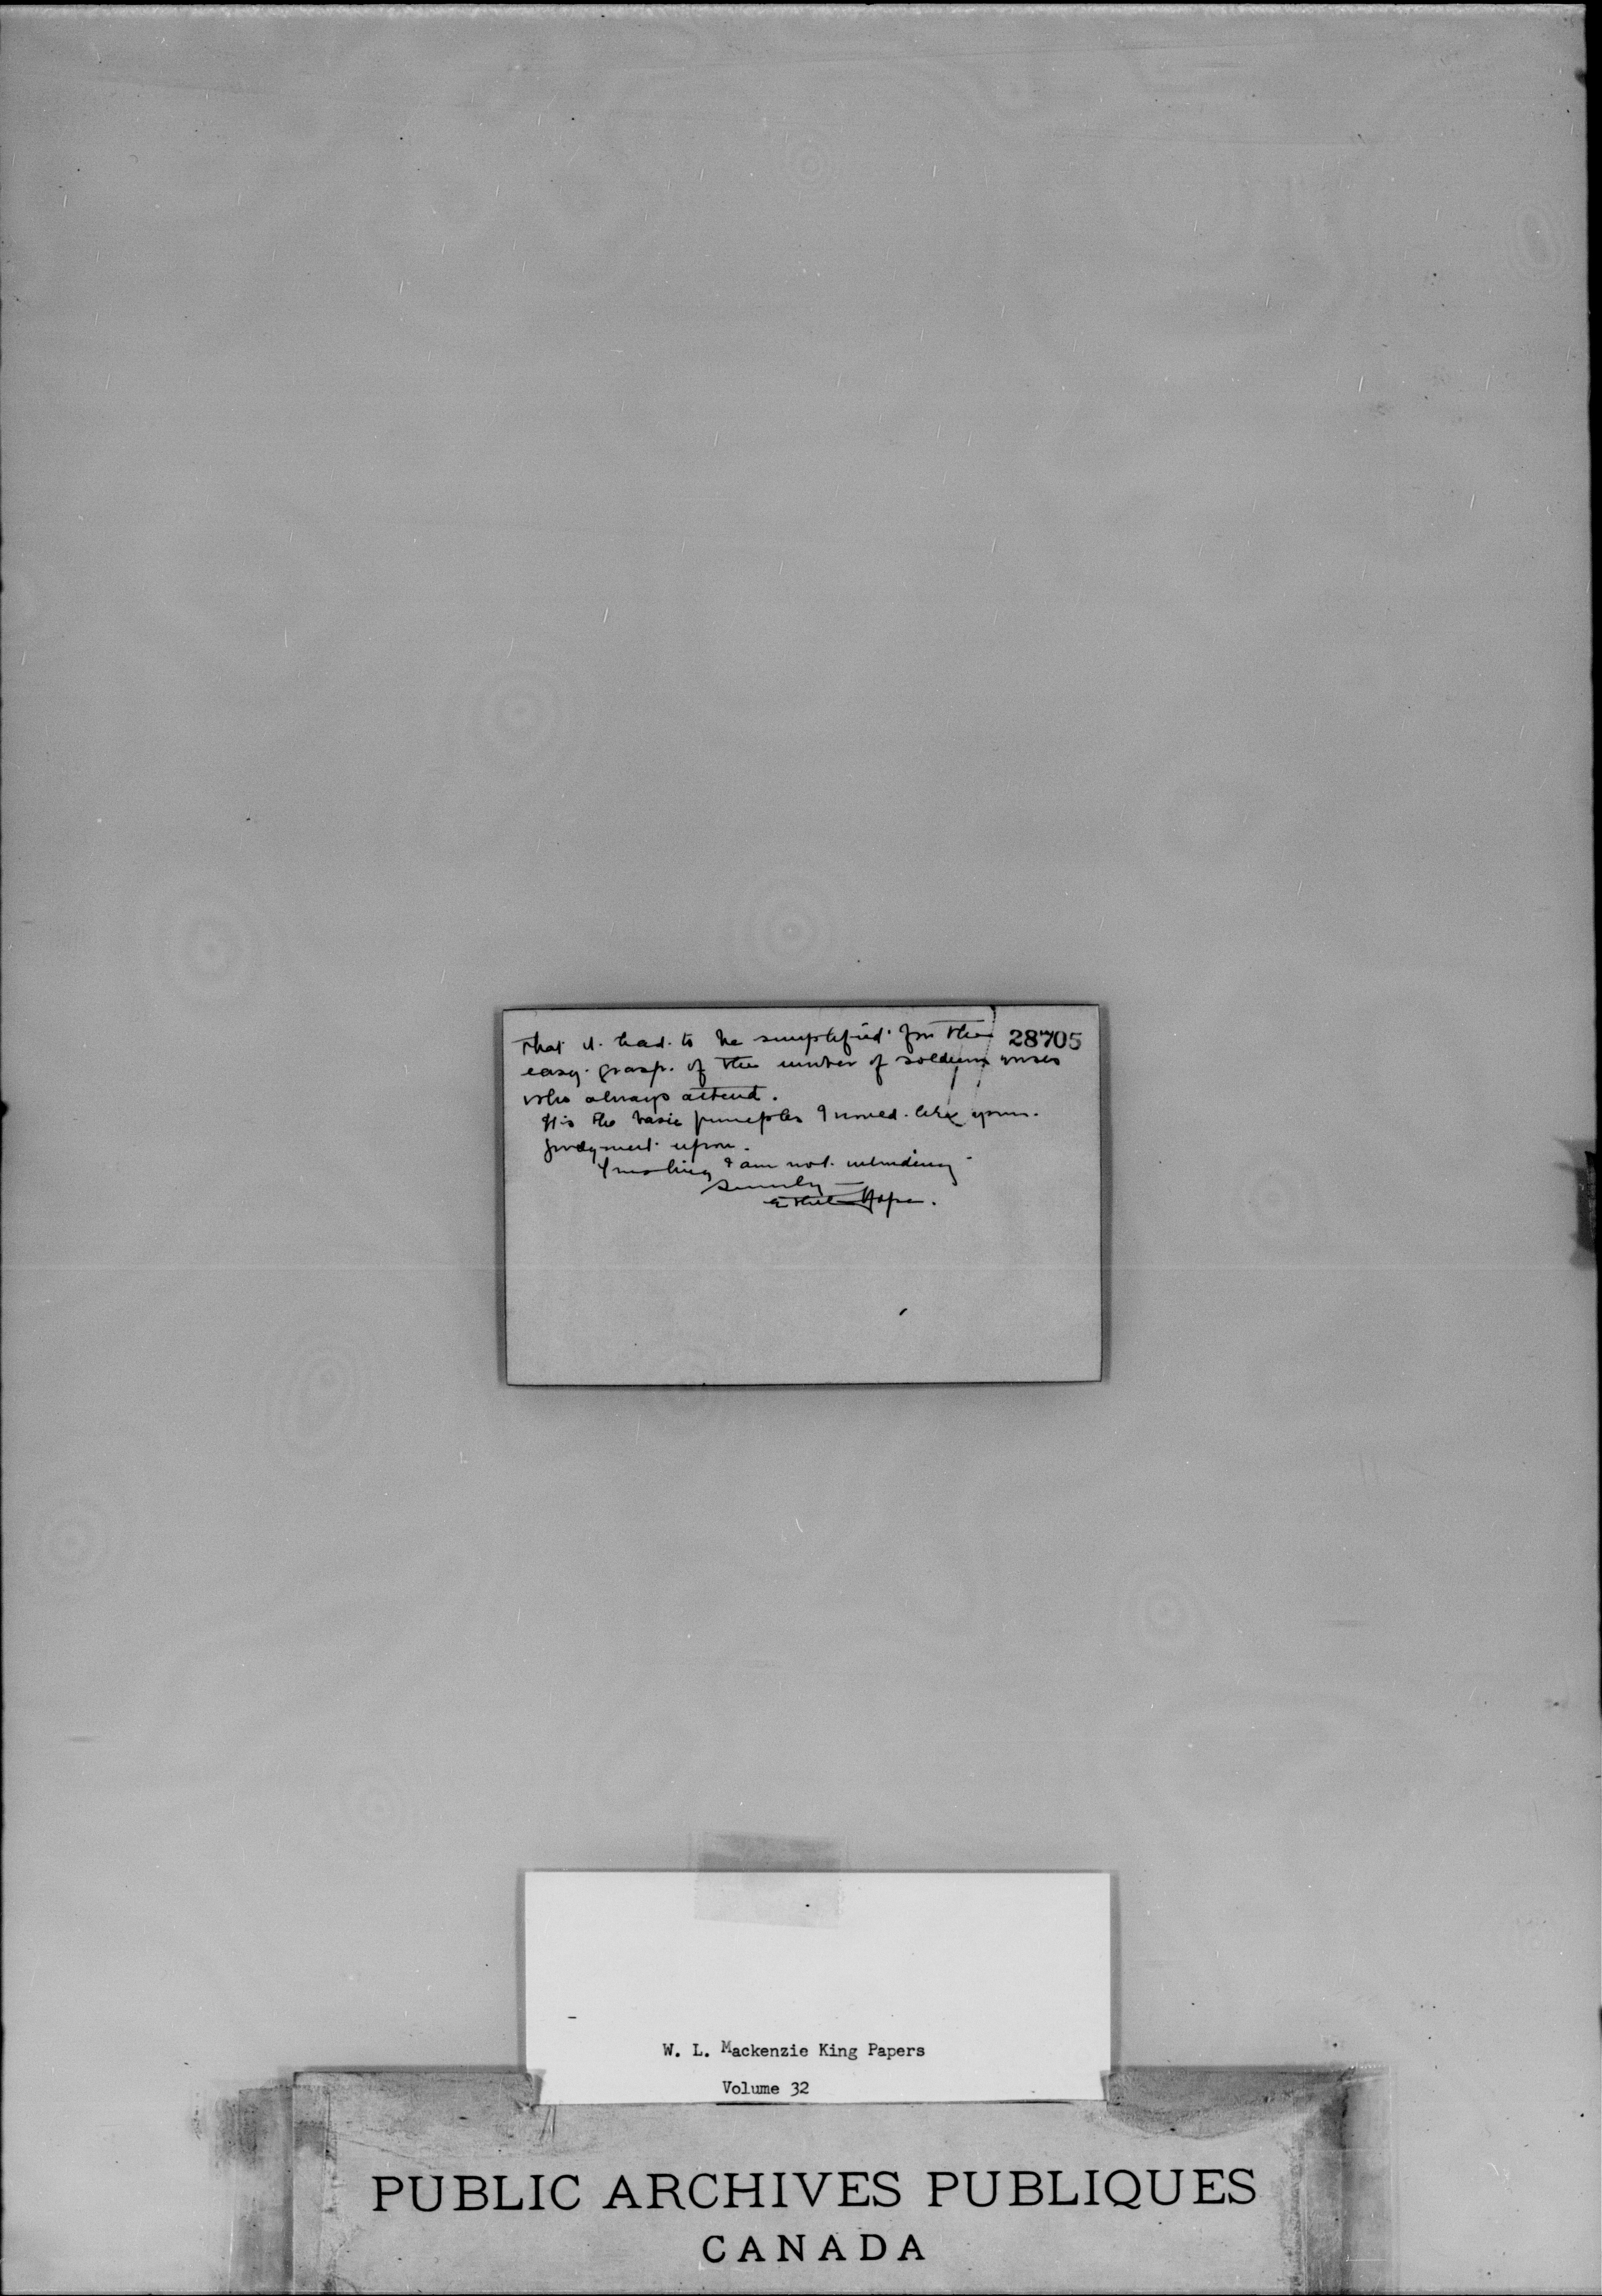 that it had to be simplified for the 28705
easy grasp of the number of soldiers wives
who always attend.
It is the basic principles I would like your
judgment upon.
Trusting I am not intruding
Sincerely
Ethel Hope.
W. L. Mackenzie King Papers
Volume 32
PUBLIC ARCHIVES PUBLIQUES
CANADA